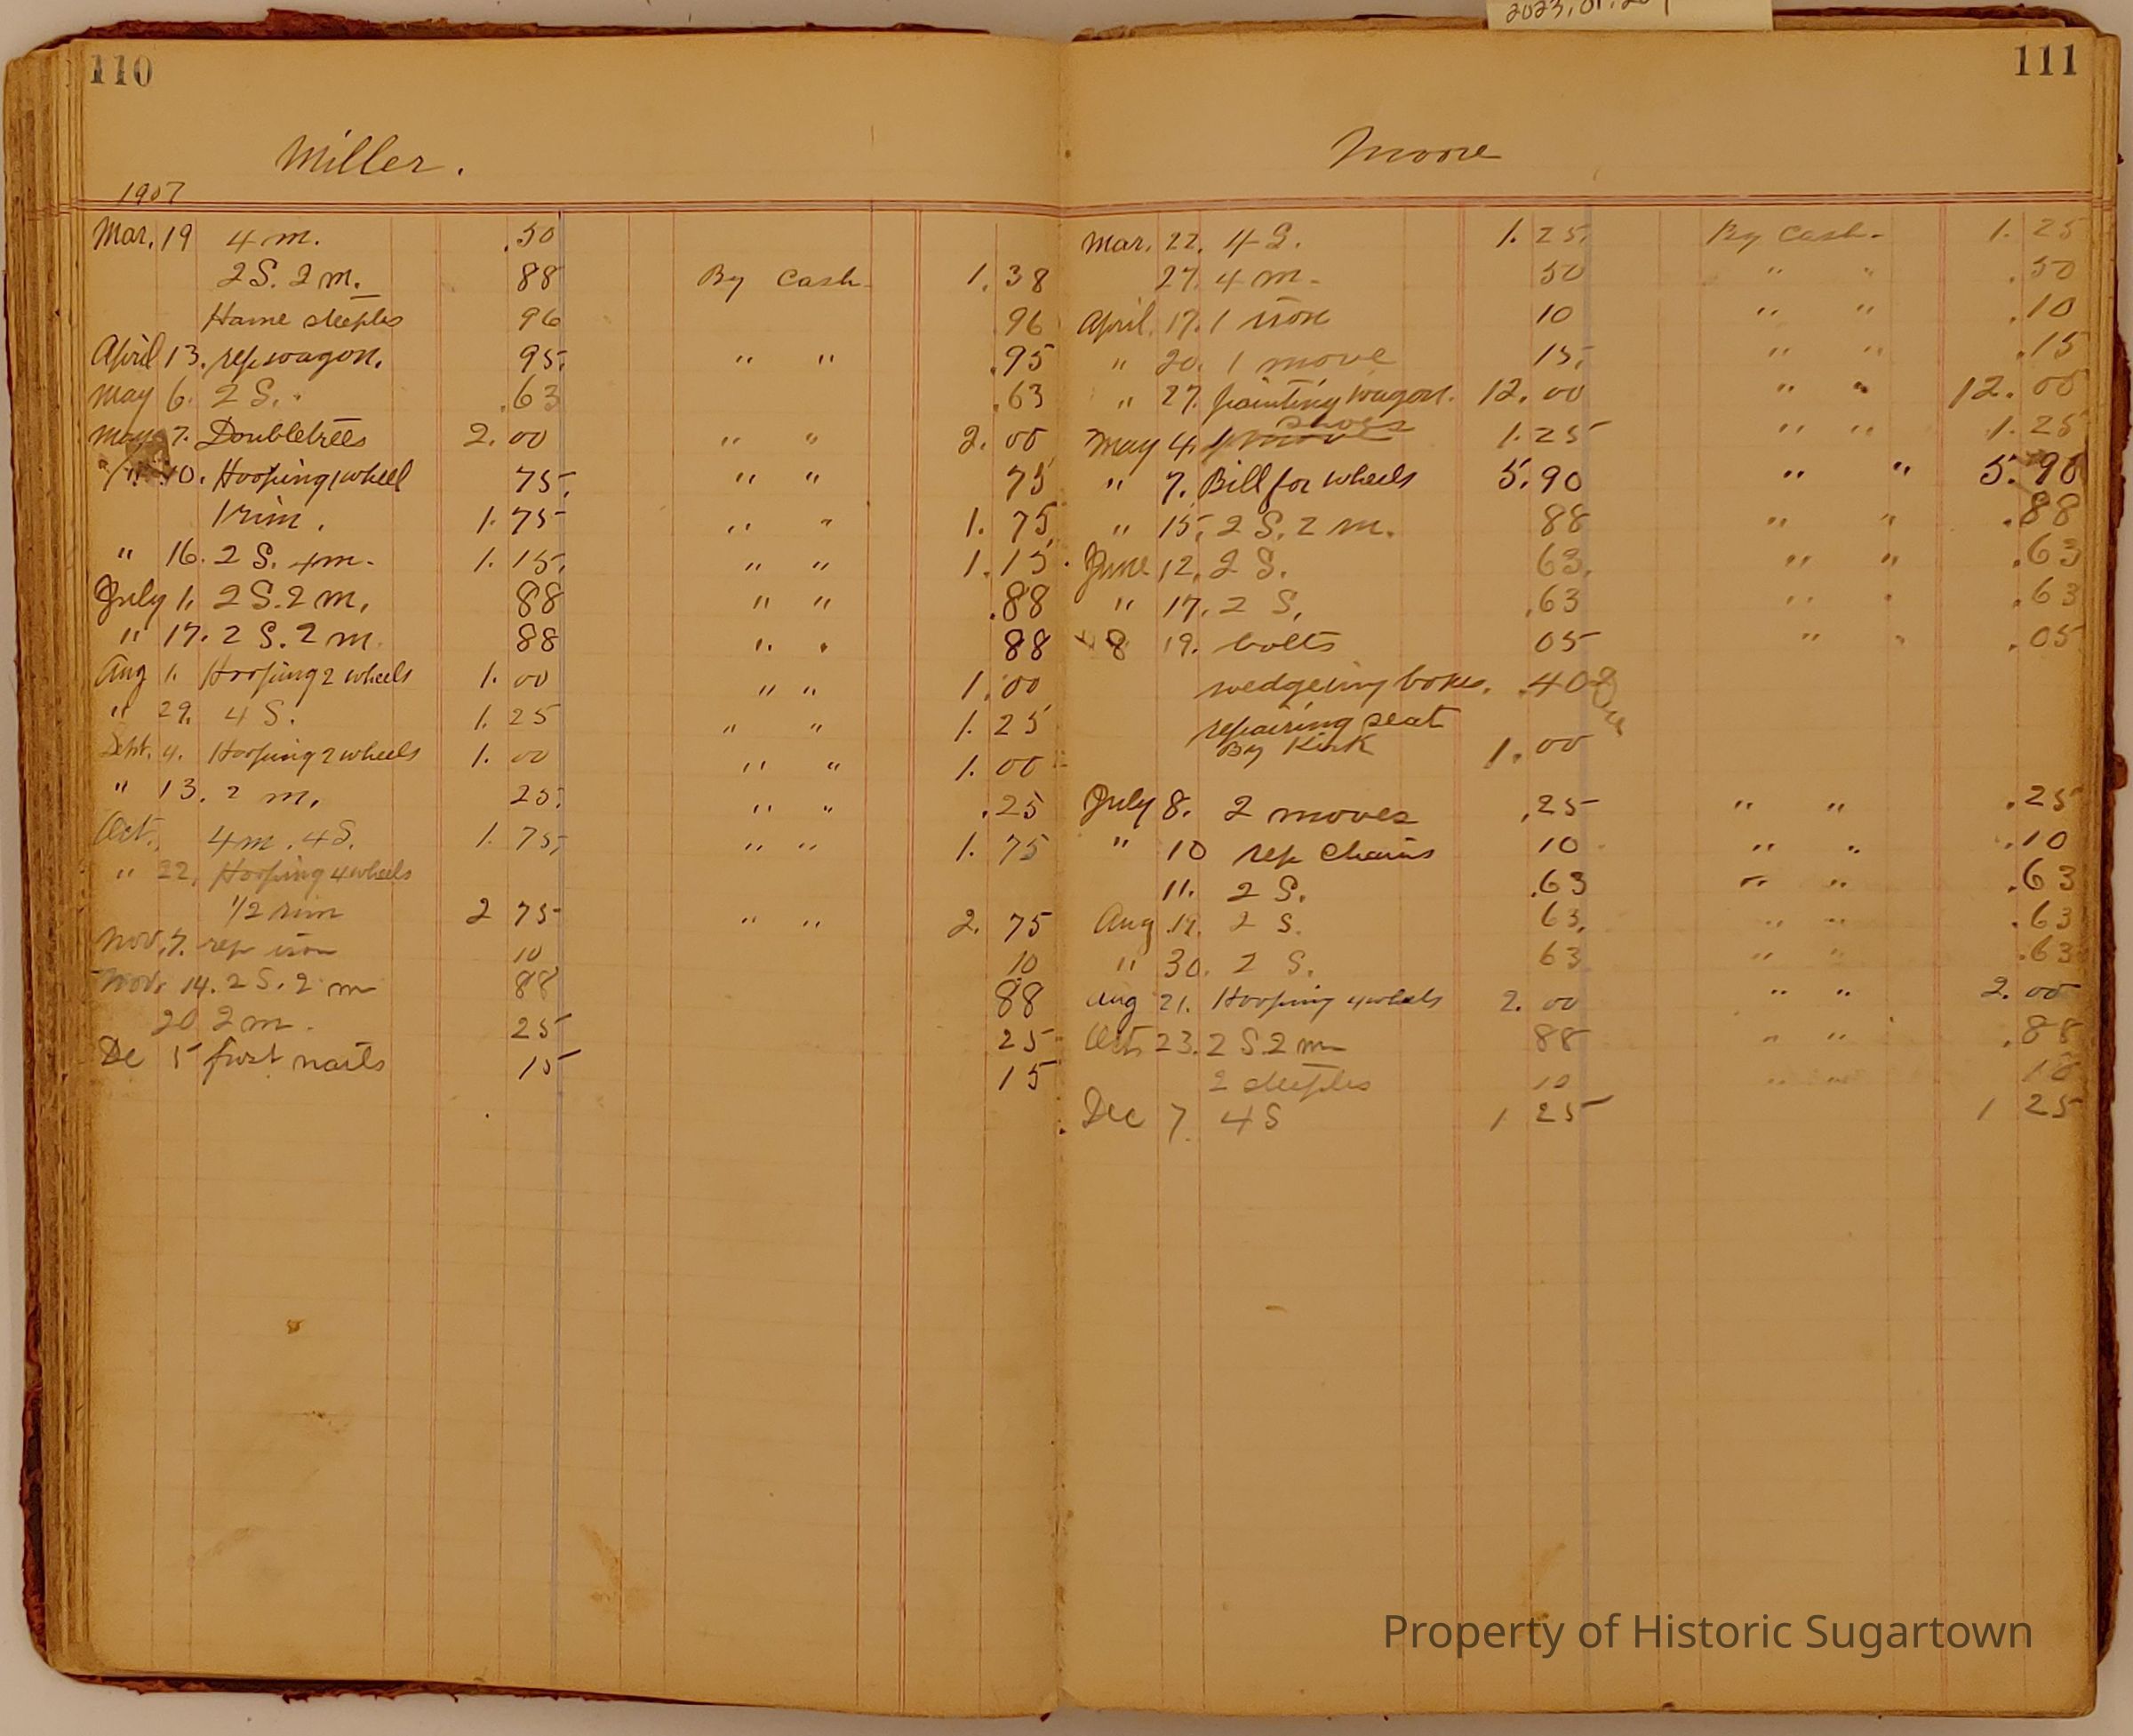 2023.01.
110
Miller.
1907
Mar. 19 4 m. .50
2 S. 2 m. 88 By Cash 1.38
Hame steeples 96 .96
April 13. rep wagon. 95. " " .95
May 6. 2 S. .63 .63
May 7. Doubletrees 2.00 " " 2.00
" 10. Hooping 1 wheel 75. " " 75
1 rim. 1.75 " " 1.75
" 16. 2 S. 4 m. 1.15. " " 1.15
July 1. 2 S. 2 m. 88 " " .88
" 17. 2 S. 2 m. 88 " " 88
Aug 1. Hooping 2 wheels 1.00 " " 1.00
" 29. 4 S. 1.25 " " 1.25
Sept. 4. Hooping 2 wheels 1.00 " " 1.00
" 13. 2 m. 25. " " .25
Oct. 4 m. 4 S. 1.75 " " 1.75
" 22, Hooping 4 wheels
1/2 rim 2 75 " " 2.75
Nov. 7. rep iron 10 10
Nov. 14. 2 S. 2 m 88 88
20 2 m. 25 25
De 5 fost nails 15 15
111
Moore
Mar. 22. 4 S. 1.25. By Cash 1.25
27. 4 m. 50 " " .50
April. 17. 1 iron 10 " " .10
" 20. 1 move 15. " " .15
" 27. painting wagon. 12.00 " " 12.00
shoes
May 4. 4 moves 1.25 " " 1.25
" 7. Bill for wheels 5.90 " " 5.90
" 15. 2 S. 2 m. 88 " " .88
June 12. 2 S. 63. " " .63
" 17. 2 S. .63 " " .63
" 8 19. bolts 05 " " .05
wedgeing boxes. .40 Due
repairing seat
By Kirk 1.00
July 8. 2 moves .25 " " .25
" 10 rep Chains 10 " " .10
11. 2 S. .63 " " .63
Aug 19. 2 S. 63. " " .63
" 30. 2 S. 63 " " .63
Aug 21. Hooping 4 wheels 2.00 " " 2.00
Oct 23. 2 S. 2 m 88 " " .88
2 steeples 10 " " 10
Dec 7. 4 S 1 25 1 25
Property of Historic Sugartown